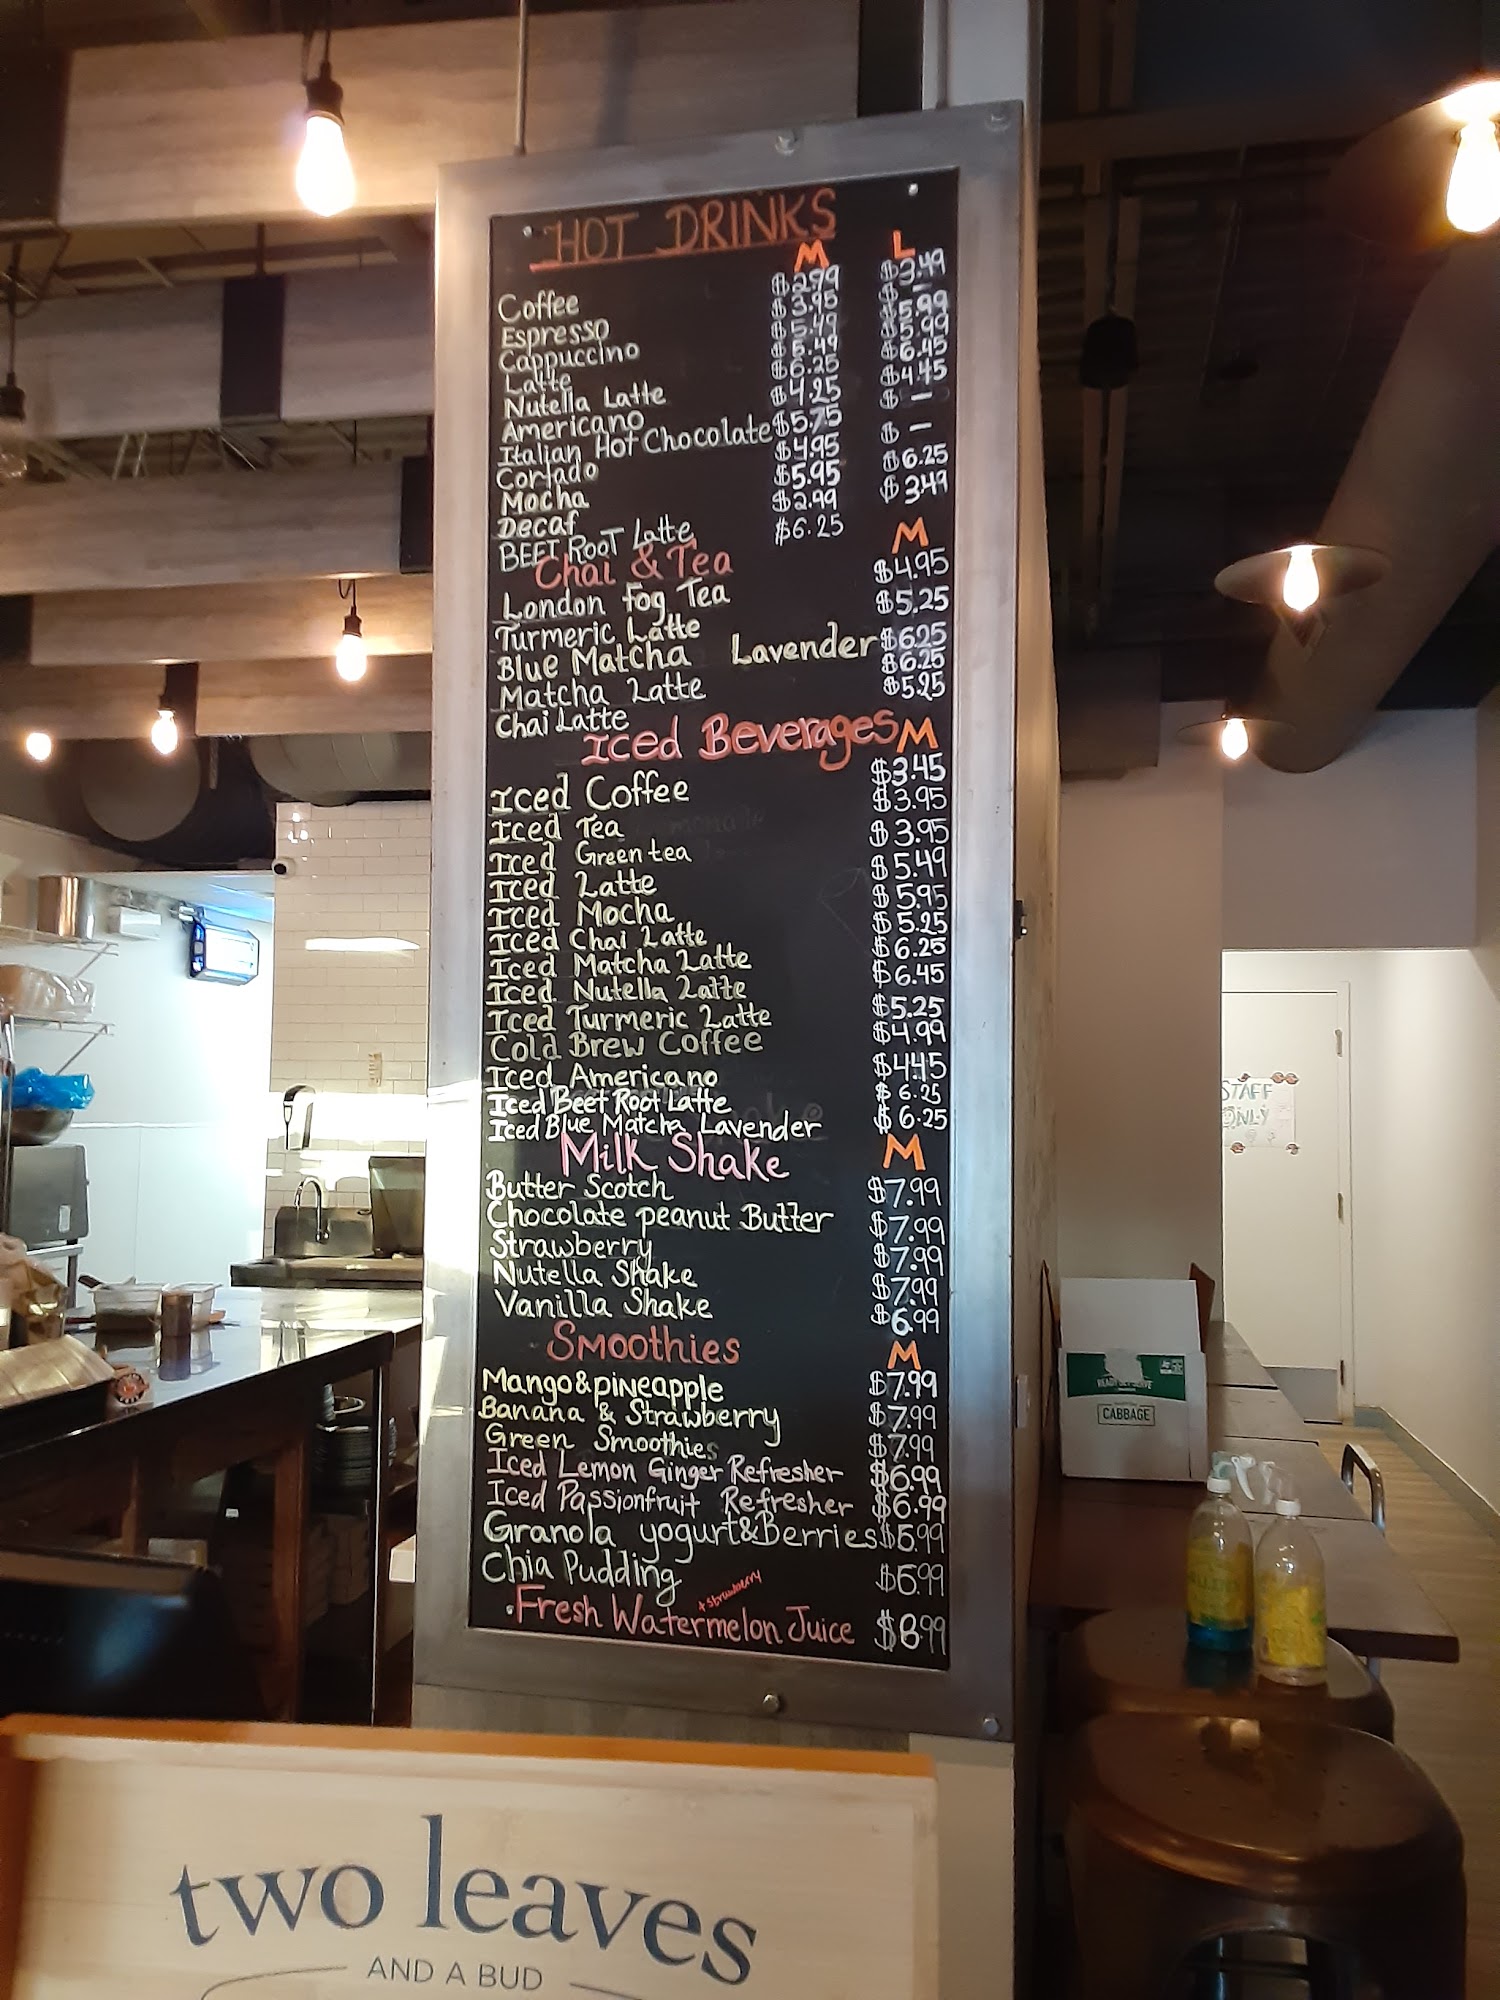 HOT DRINKS
M L
Coffee $2.99 $3.49
Espresso $3.95 $ -
Cappuccino $5.49 $5.99
Latte $5.49 $5.99
Nutella Latte $6.25 $6.45
Americano $4.25 $4.45
Italian Hot Chocolate $5.75 $ -
Cortado $4.95 $ -
Mocha $5.95 $6.25
Decaf $2.99 $3.49
BEET ROOT Latte $6.25
Chai & Tea M
London Fog Tea $4.95
Turmeric Latte $5.25
Blue Matcha Lavender $6.25
Matcha Latte $6.25
Chai Latte $5.25
Iced Beverages M
Iced Coffee $3.45
Iced Tea $3.95
Iced Green tea $3.95
Iced Latte $5.49
Iced Mocha $5.95
Iced Chai Latte $5.25
Iced Matcha Latte $6.25
Iced Nutella Latte $6.45
Iced Turmeric Latte $5.25
Cold Brew Coffee $4.99
Iced Americano $4.45
Iced Beet Root Latte $6.25
Iced Blue Matcha Lavender $6.25
Milk Shake M
Butter Scotch $7.99
Chocolate peanut Butter $7.99
Strawberry $7.99
Nutella Shake $7.99
Vanilla Shake $6.99
Smoothies M
Mango & pineapple $7.99
Banana & Strawberry $7.99
Green Smoothies $7.99
Iced Lemon Ginger Refresher $6.99
Iced Passionfruit Refresher $6.99
Granola yogurt & Berries $5.99
Chia Pudding
+ Strawberry
Fresh Watermelon Juice
STAFF
ONLY
CABBAGE
two leaves
AND A BUD